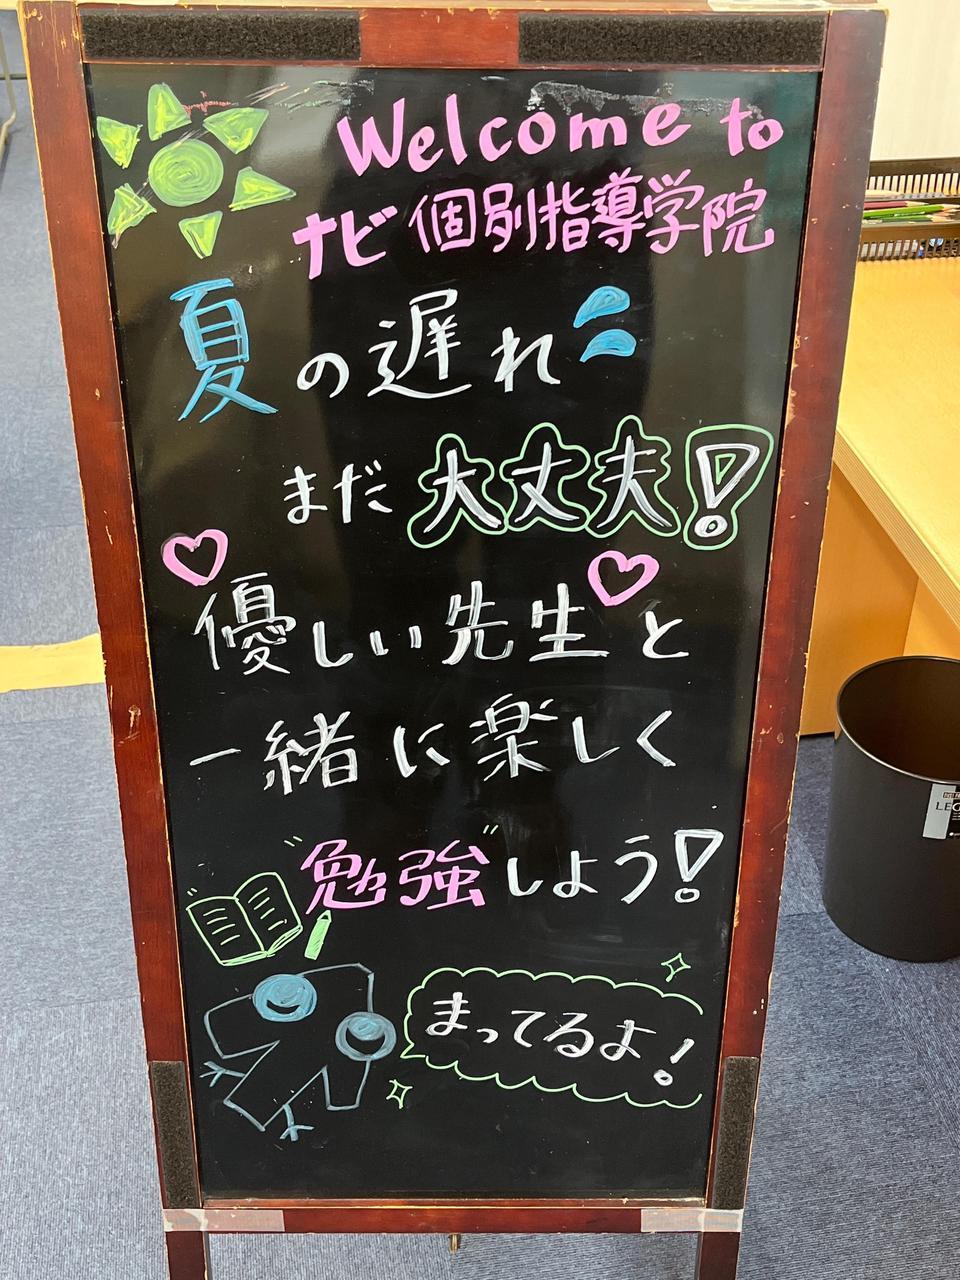 Welcome to
ナビ個別指導学院
夏の遅れ
まだ大丈夫!
優しい先生と
一緒に楽しく
"勉強"しよう!
まってるよ!